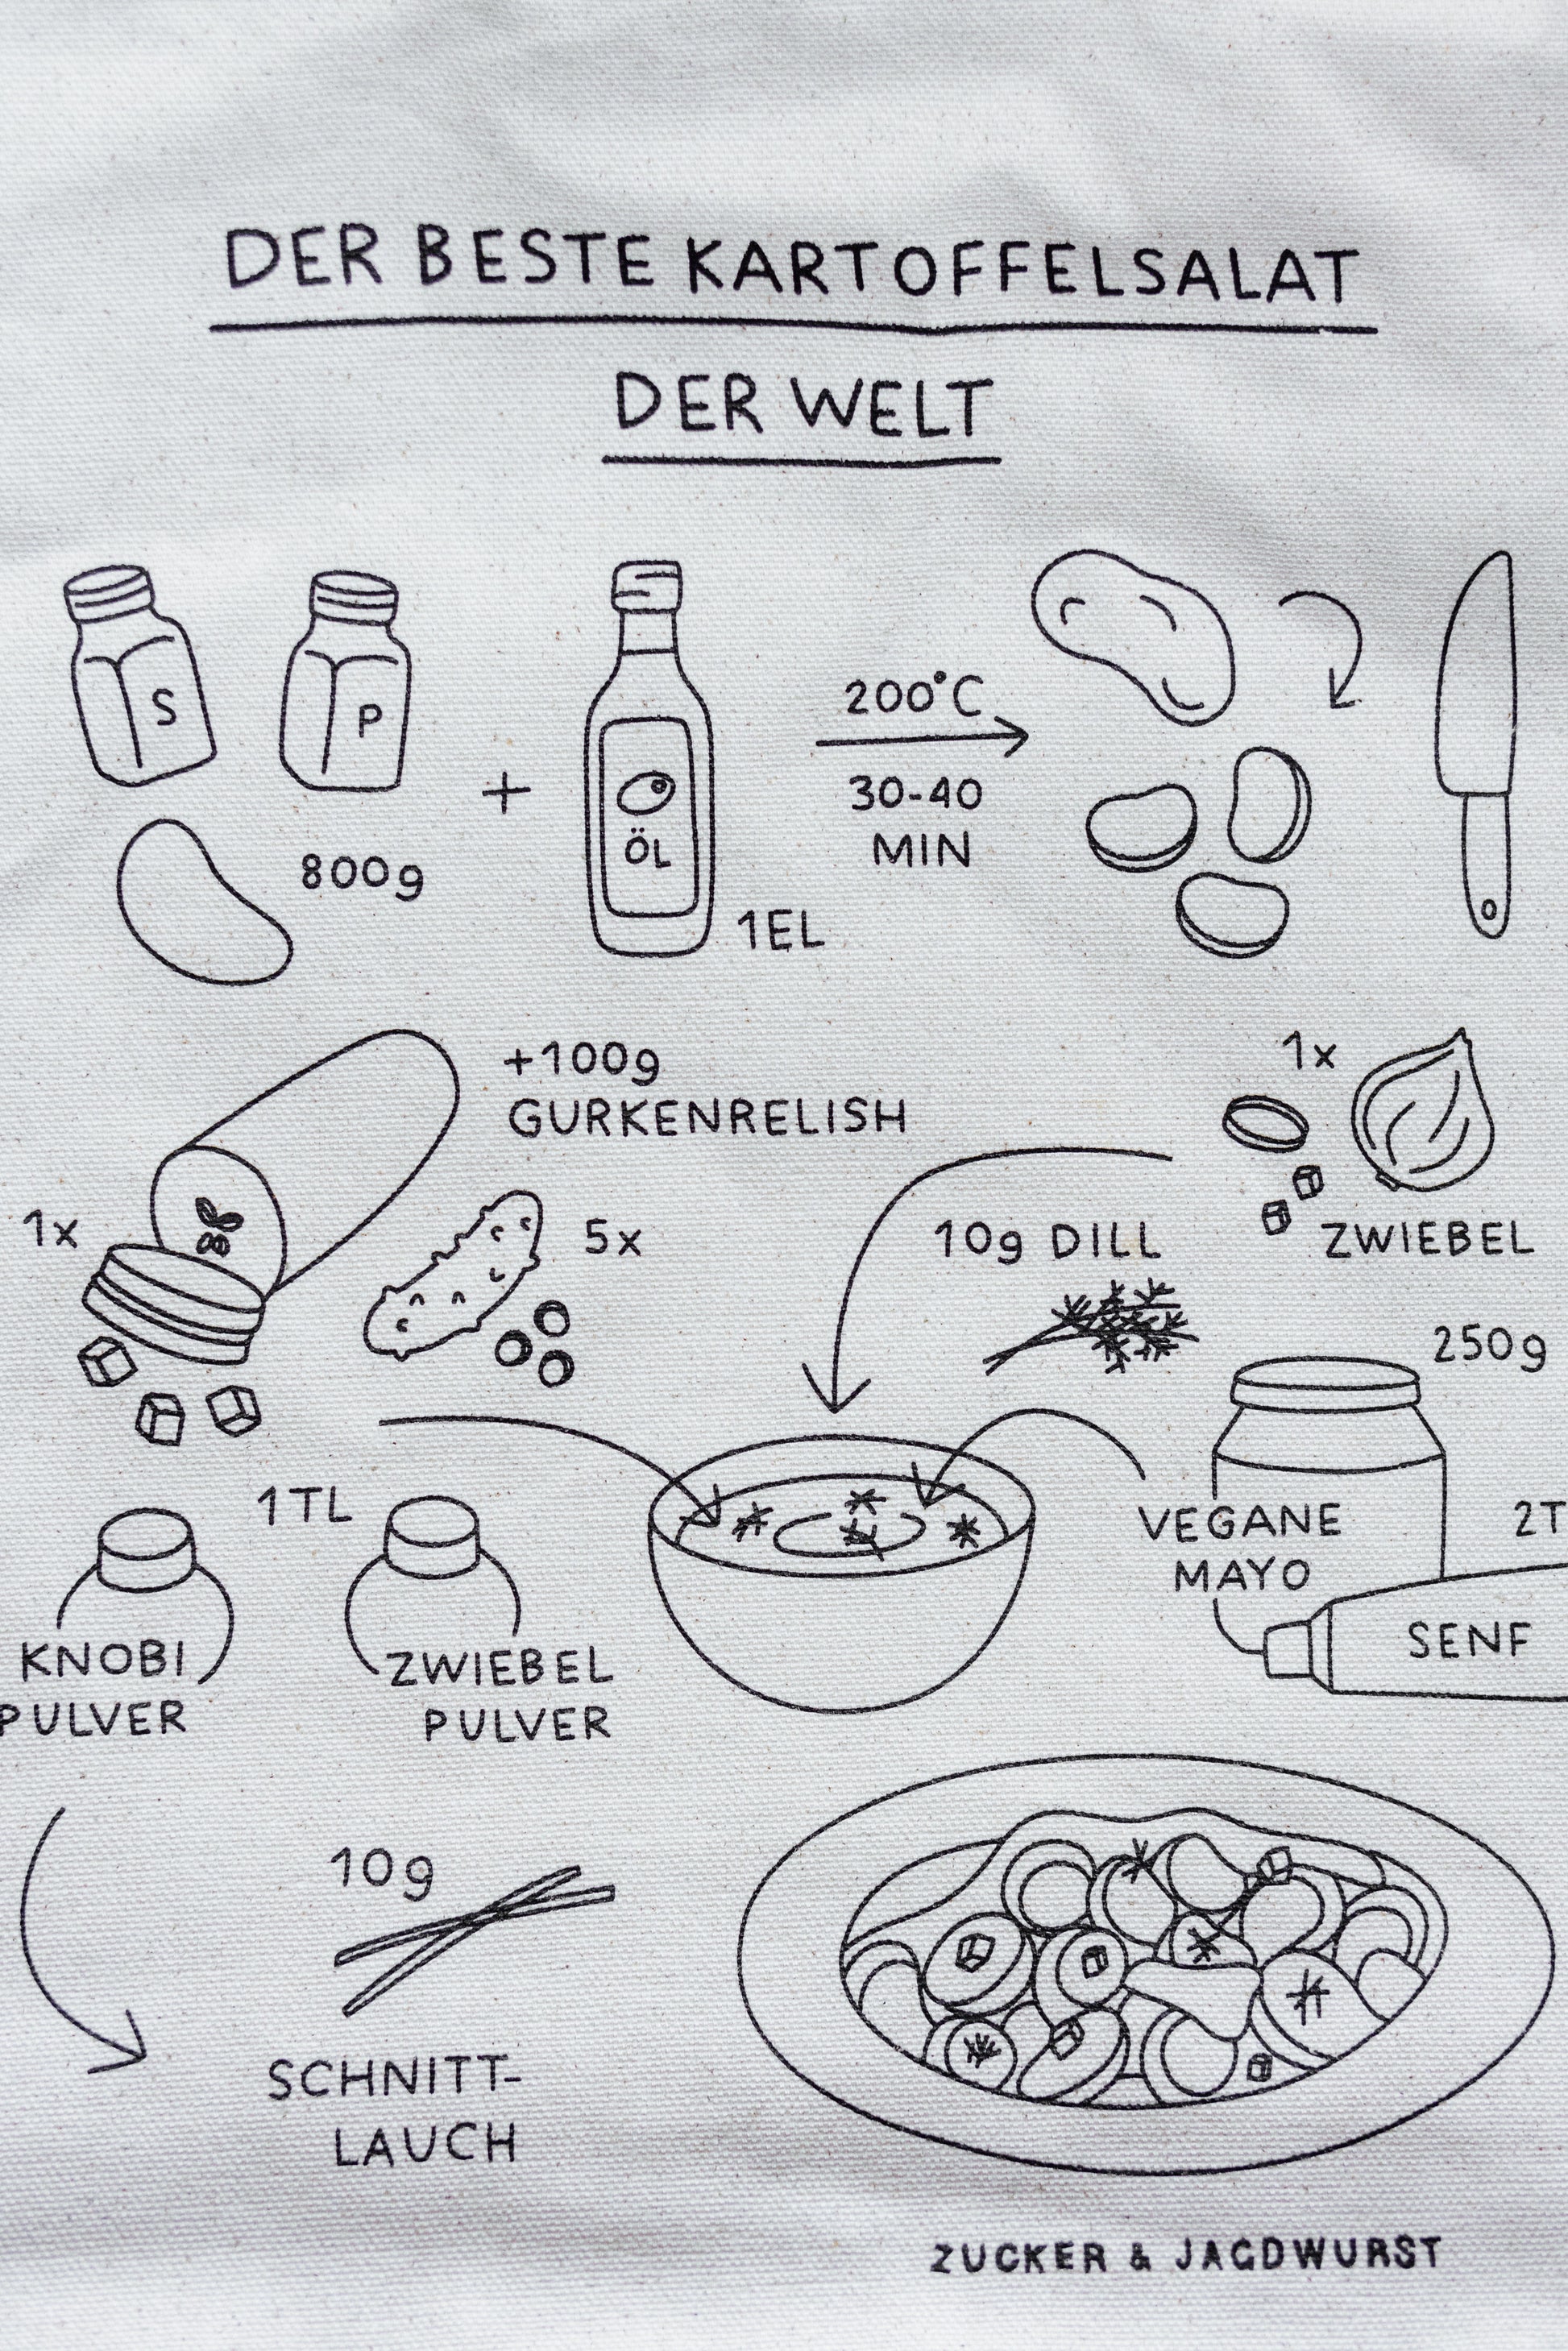 DER BESTE KARTOFFELSALAT
DER WELT
S
P
800g
+
ÖL
1EL
200°C
30-40
MIN
+100g
GURKENRELISH
1x
5x
1x
ZWIEBEL
10g DILL
250g
VEGANE
MAYO
2T
SENF
1TL
KNOBI
PULVER
ZWIEBEL
PULVER
10g
SCHNITT-
LAUCH
ZUCKER & JAGDWURST